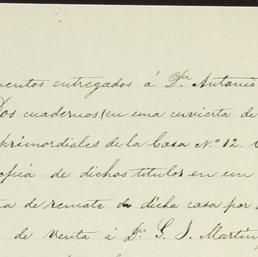 mentos entregados á Dn Antonio
Dos cuadernos (en una cuvierta de
primordiales de la Casa N.º 12.
opia de dichos titulos en un
a de remate de dicha casa por
de venta á Dn. G. J. Martin